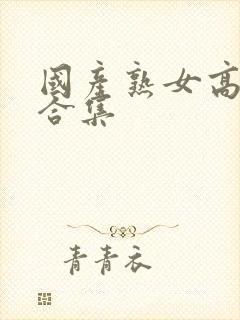 國產熟女高
合集
青青衣